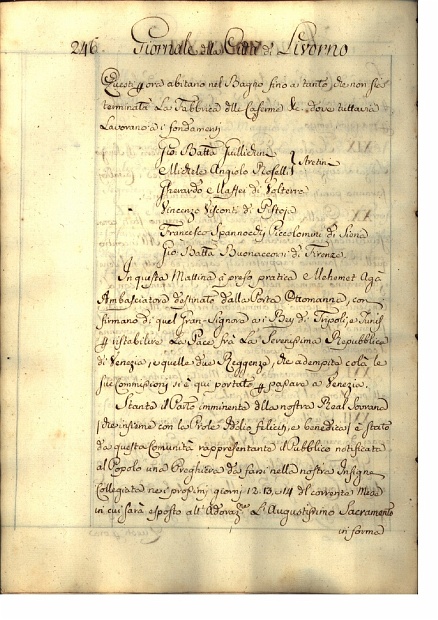 246. Giornale della Città di Livorno
Questi p ora abitano nel Bagno fino a tanto che non sia
terminata La Fabbrica dlle Caserme &c. dove tuttavia
Lavorano a i fondamenti
Gio: Batta
Michele Angiolo Roselli Aretini
Gherardo Maffei di Volterra
Vincenzo Visconti di Pistoja
Francesco Spannocchj Piccolomini di Siena
Gio: Batta Buonaccorsi di Firenze
In questa Mattina à preso pratica Mehemet Agà
Ambasciatore destinato dalla Porta Ottomanna, con
firmano di quel Gran-Signore a i Bey di Tripoli, e Tunis
p ristabilire La Pace frà La Serenissima Repubblica
di Venezia, e quelle due Reggenze, che adempita colà le
sue Commissioni si è qui portato p passare a Venezia.
Stante il Parto imminente dlla nostra Real Sovrana
che insieme con la Prole Iddio felicis, e benedica è stato
da questa Comunità rappresentante il Pubblico notificata
al Popolo una Preghiera da farsi nella nostra Insigne
Collegiata nei prossimi giorni 12. 13. e 14 del corrente Mese
in cui sarà esposto all' Adoraz.e L'Augustissimo Sacramento
in forma